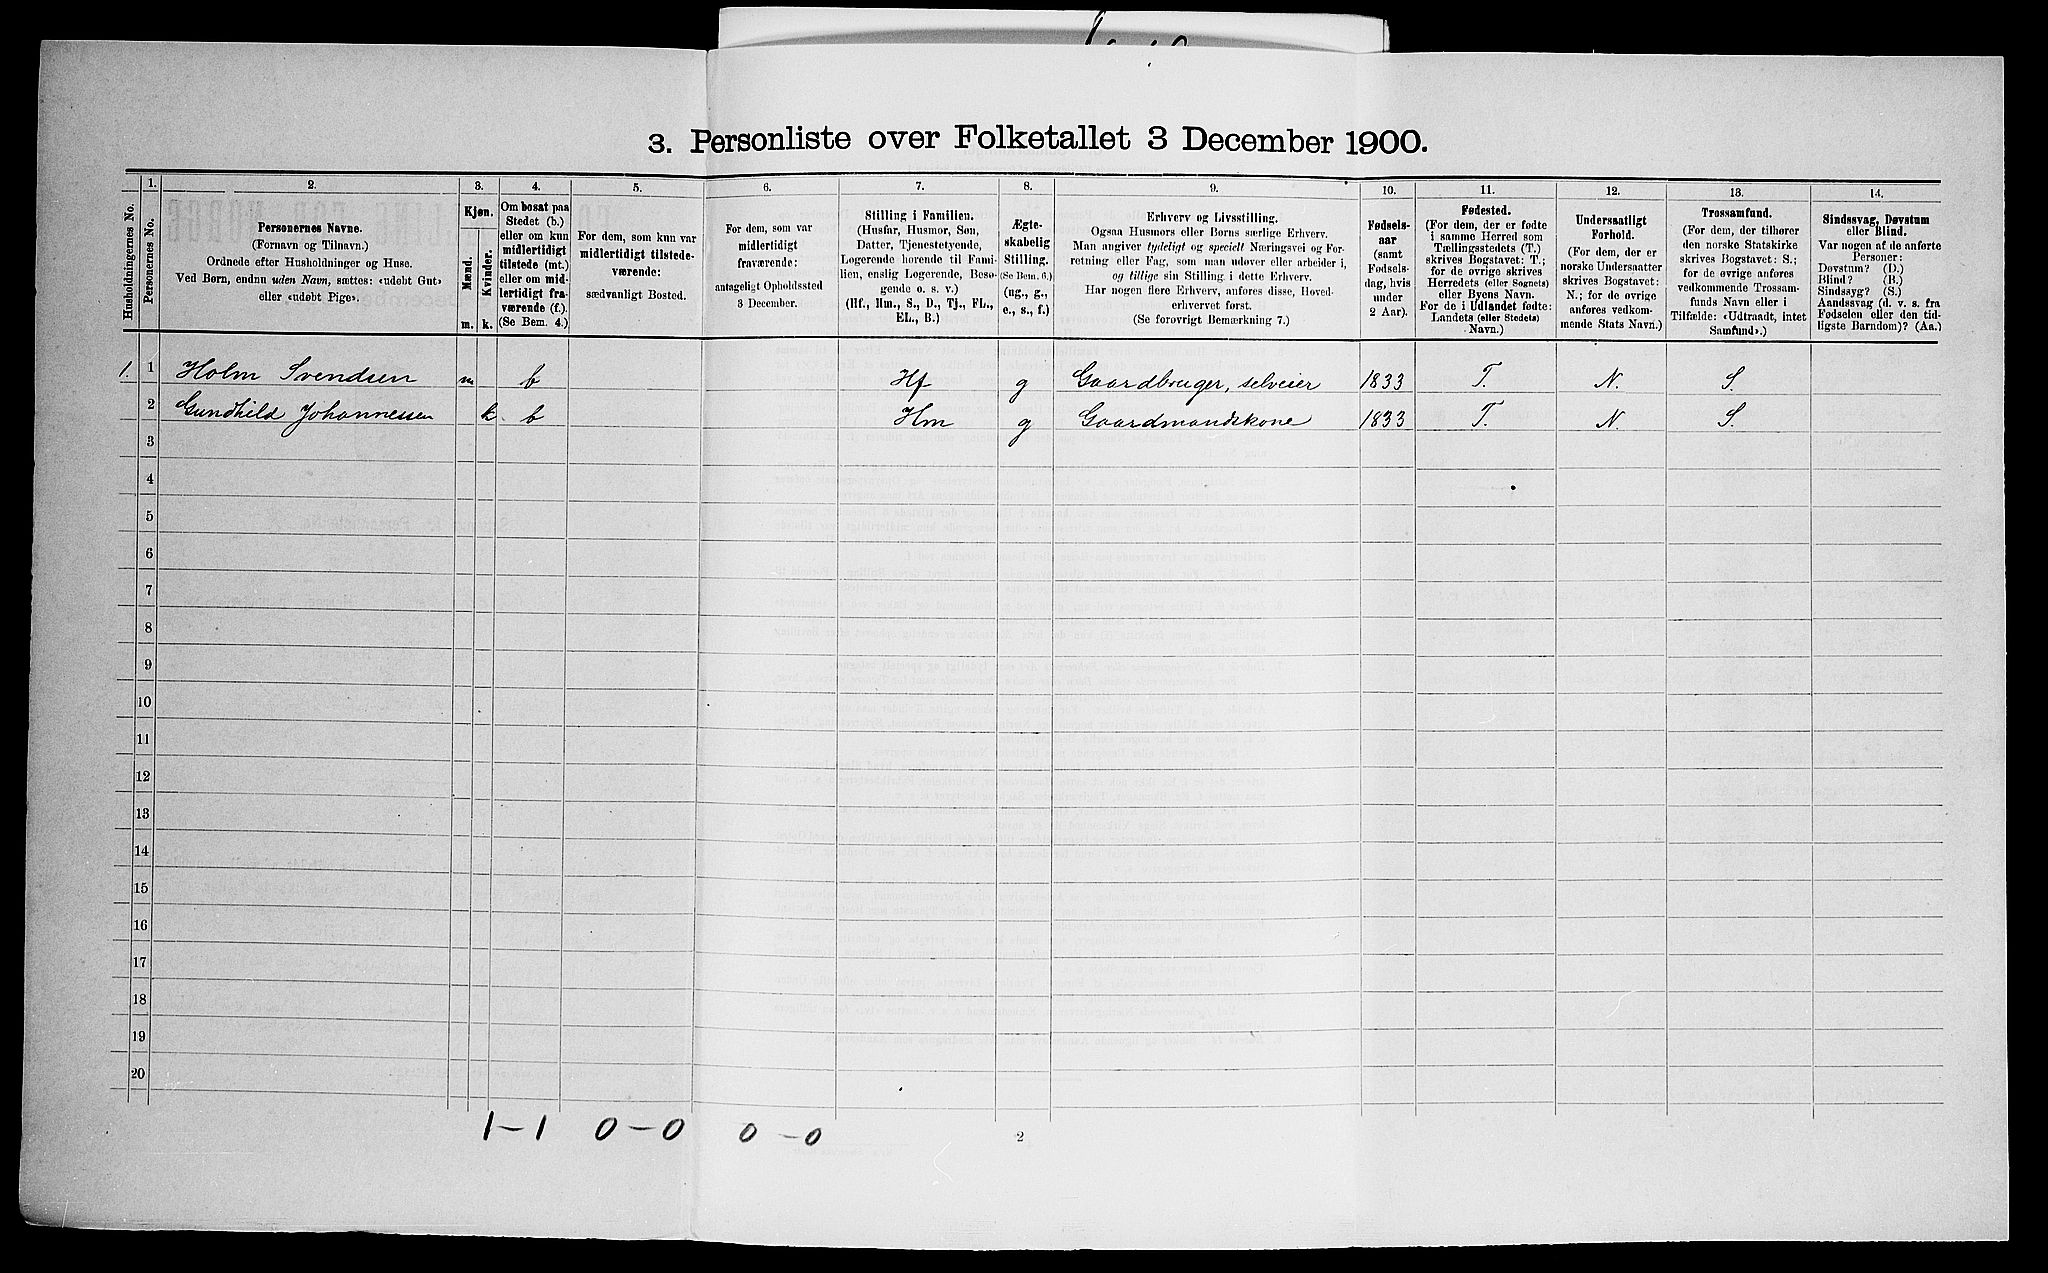 3. Personliste over Folketallet 3 December 1900.
Husholdningernes No.
1.
Personernes No.
2.
Personernes Navne.
(Fornavn og Tilnavn.)
Ordnede efter Husholdninger og Huse.
Ved Børn, endnu uden Navn, sættes: «udøbt Gut»
eller «udøbt Pige».
3.
Kjøn.
Mænd.
Kvinder.
m. k.
4.
Om bosat paa
Stedet (b.)
eller om kun
midlertidigt
tilstede (mt.)
eller om mid-
lertidigt fra-
værende (f.).
(Se Bem. 4.)
5.
For dem, som kun var
midlertidigt tilstede-
værende:
sædvanligt Bosted.
6.
For dem, som var
midlertidigt
fraværende:
antageligt Opholdssted
3 December.
7.
Stilling i Familien.
(Husfar, Husmor, Søn,
Datter, Tjenestetyende,
Logerende hørende til Fami-
lien, enslig Logerende, Besø-
gende o. s. v.)
(Hf., Hm., S., D., Tj., FL.,
EL., B.)
8.
Ægte-
skabelig
Stilling.
(Se Bem. 6.)
(ug., g.,
e., s., f.)
9.
Erhverv og Livsstilling.
Ogsaa Husmors eller Børns særlige Erhverv.
Man angiver tydeligt og specielt Næringsvei og For-
retning eller Fag, som man udøver eller arbeider i,
og tillige sin Stilling i dette Erhverv.
Har nogen flere Erhverv, anføres disse, Hoved-
erhvervet først.
(Se forøvrigt Bemærkning 7.)
10.
Fødsels-
aar
(samt
Fødsels-
dag, hvis
under
2 Aar).
11.
Fødested.
(For dem, der er fødte
i samme Herred som
Tællingsstedets (T.)
skrives Bogstavet: T.;
for de øvrige skrives
Herredets (eller Sognets)
eller Byens Navn.
For de i Udlandet fødte:
Landets (eller Stedets)
Navn.)
12.
Undersaatligt
Forhold.
(For dem, der er
norske Undersaatter
skrives Bogstavet:
N.; for de øvrige
anføres vedkom-
mende Stats Navn.)
13.
Trossamfund.
(For dem, der tilhører
den norske Statskirke
skrives Bogstavet: S.;
for de øvrige anføres
vedkommende Trossam-
funds Navn eller i
Tilfælde: «Udtraadt, intet
Samfund».)
14.
Sindssvag, Døvstum
eller Blind.
Var nogen af de anførte
Personer:
Døvstum? (D.)
Blind? (B.)
Sindssyg? (S.)
Aandssvag (d. v. s. fra
Fødselen eller den tid-
ligste Barndom)? (Aa.)
1. 1 Holm Svendsen m b Hf g Gaardbruger, selveier 1833 T. N. S.
2 Gundhild Johannessen k. b Hm g Gaardmandskone 1833 T. N. S.
3
4
5
6
7
8
9
10
11
12
13
14
15
16
17
18
19
20
1-1 0-0 0-0
2